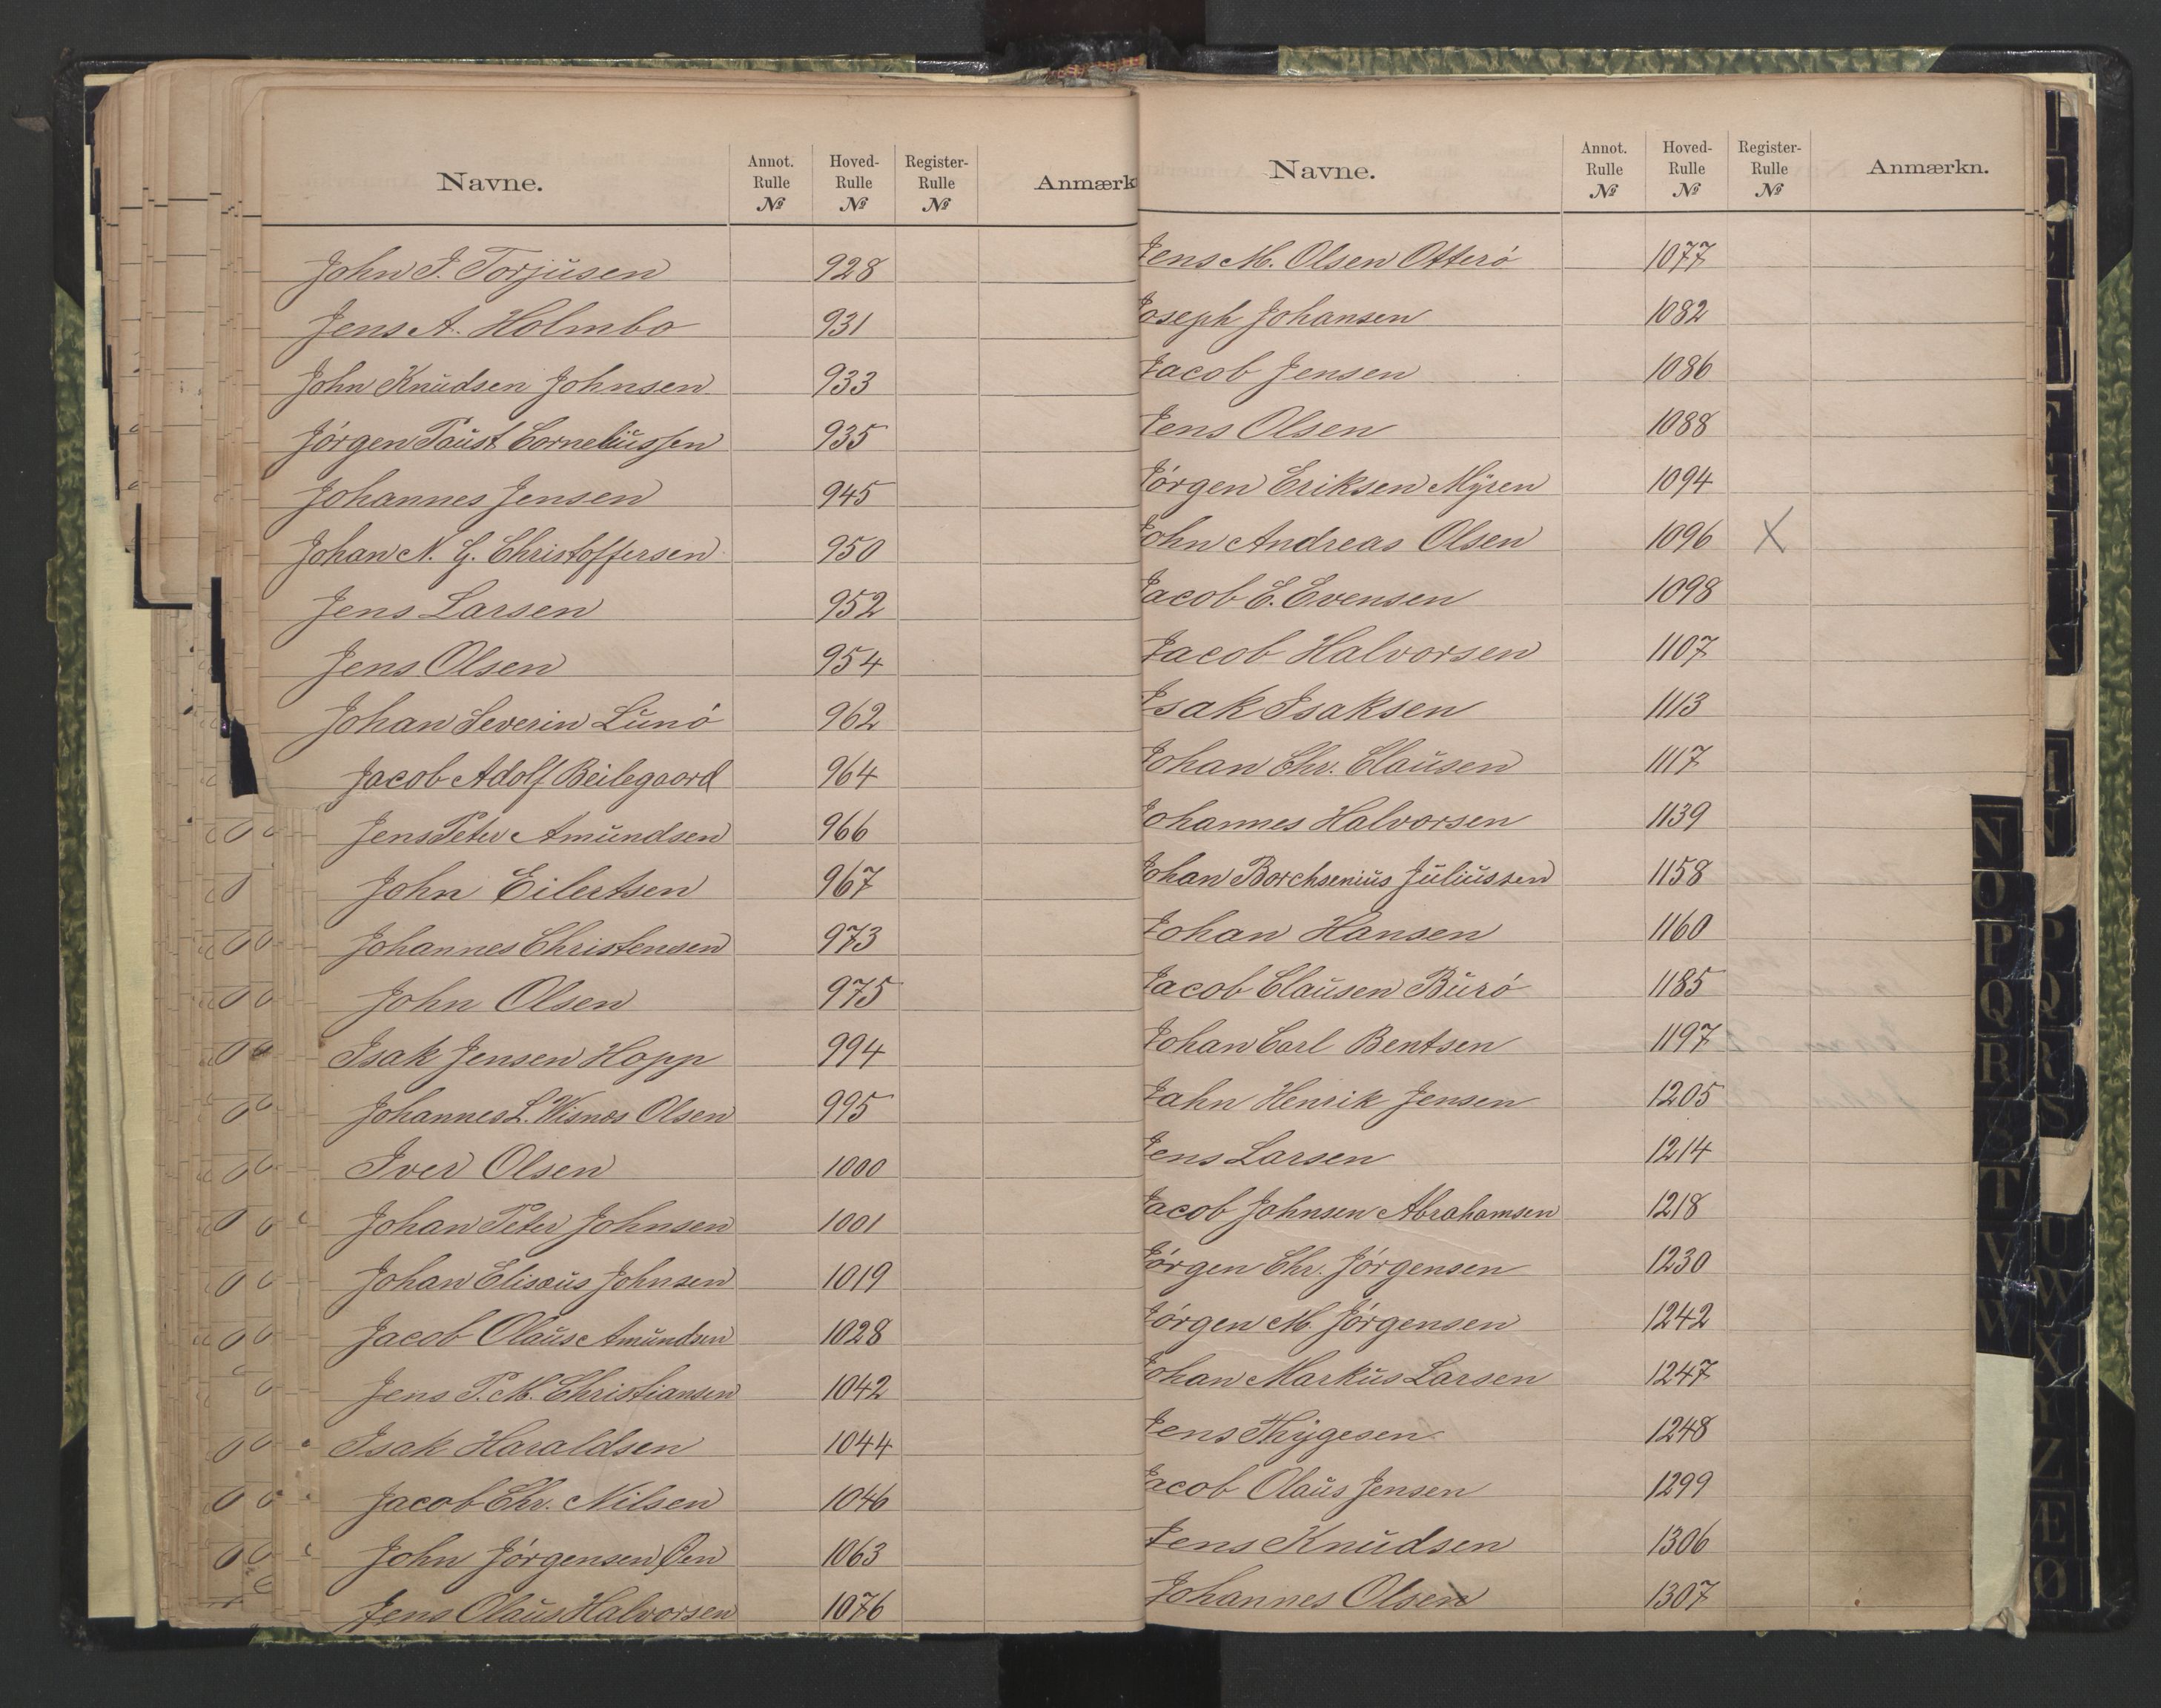 Navne. Annot. Rulle № Hoved-Rulle № Register-Rulle № Anmærk
John J. Torjusen 928
Jens A. Holmbo 931
John Knudsen Johnsen 933
Jörgen Faust Corneliussen 935
Johannes Jensen 945
Johan N. G. Christoffersen 950
Jens Larsen 952
Jens Olsen 954
Johan Severin Lunö 962
Jacob Adolf Beilegaard 964
Jens Peter Amundsen 966
John Eilertsen 967
Johannes Christensen 973
John Olsen 975
Isak Jensen Hopp 994
Johannes L. Wisnes Olsen 995
Iver Olsen 1000
Johan Peter Johnsen 1001
Johan Elisæus Johnsen 1019
Jacob Olaus Amundsen 1028
Jens P. M. Christiansen 1042
Isak Haraldsen 1044
Jacob Chr. Nilsen 1046
John Jörgensen Öen 1063
Jens Olaus Halvorsen 1076
Navne. Annot. Rulle № Hoved-Rulle № Register-Rulle № Anmærkn.
Jens M. Olsen Otterö 1077
Joseph Johansen 1082
Jacob Jensen 1086
Jens Olsen 1088
Jörgen Eriksen Myren 1094
John Andreas Olsen 1096 X
Jacob E. Evensen 1098
Jacob Halvorsen 1107
Isak Isaksen 1113
Johan Chr. Clausen 1117
Johannes Halvorsen 1139
Johan Borchsenius Juliussen 1158
Johan Hansen 1160
Jacob Clausen Burö 1185
Johan Carl Bentsen 1197
Jahn Henrik Jensen 1205
Jens Larsen 1214
Jacob Johnsen Abrahamsen 1218
Jörgen Chr. Jörgensen 1230
Jörgen M. Jörgensen 1242
Johan Markus Larsen 1247
Jens Thygesen 1248
Jacob Olaus Jensen 1299
Jens Knudsen 1306
Johannes Olsen 1307
N
O
P
Q
R
S
T
V
W
P
Q
R
S
U
W
X
Y
Z
Æ
Ø